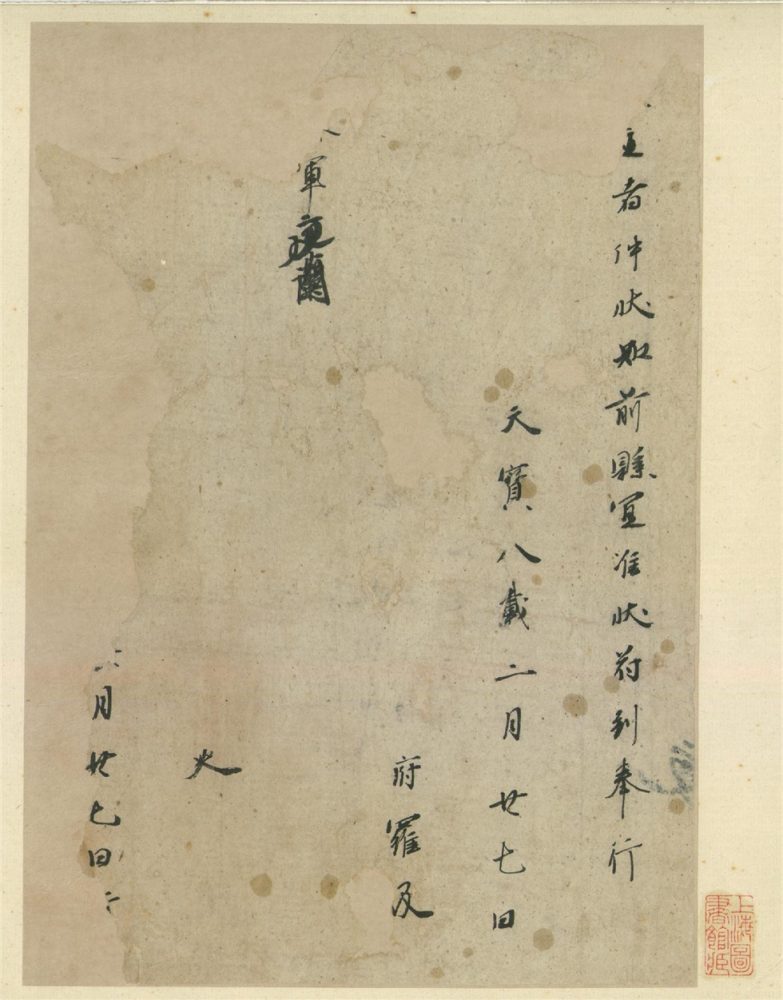 主者件狀如前縣宜准狀符到奉行
天寶八載二月廿七日
府羅及
軍 蘭
史
月廿七日
上海圖書館藏